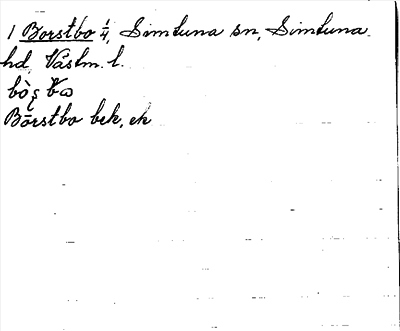 1 Borstbo 1/4, Simtuna sn, Simtuna
hd, Västm. l.
Börstbo bek, ek